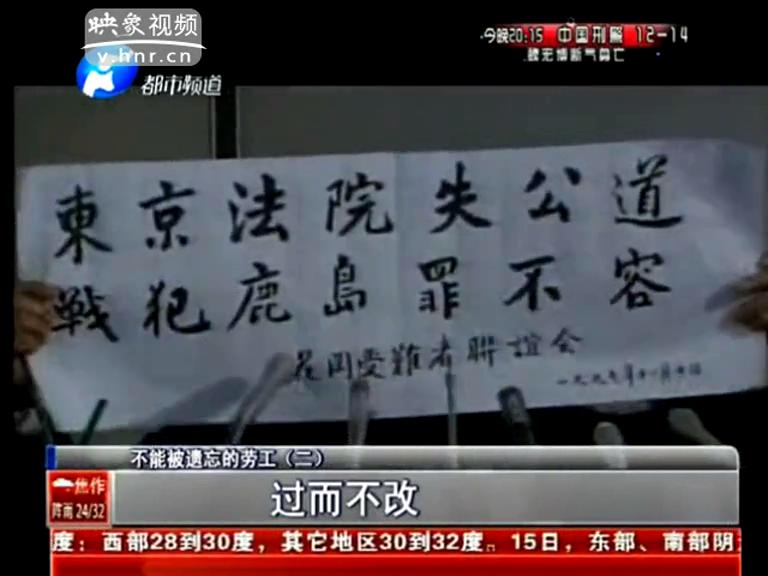 映象视频
v.hnr.cn
都市频道
今晚20:15 中国刑警 12-14
魏宏博断气身亡
東京法院失公道
戦犯鹿島罪不容
花岡受難者聯誼会
一九九七年十二月十日
不能被遗忘的劳工（二）
焦作
阵雨 24/32
过而不改
度：西部28到30度，其它地区30到32度。15日，东部、南部阴